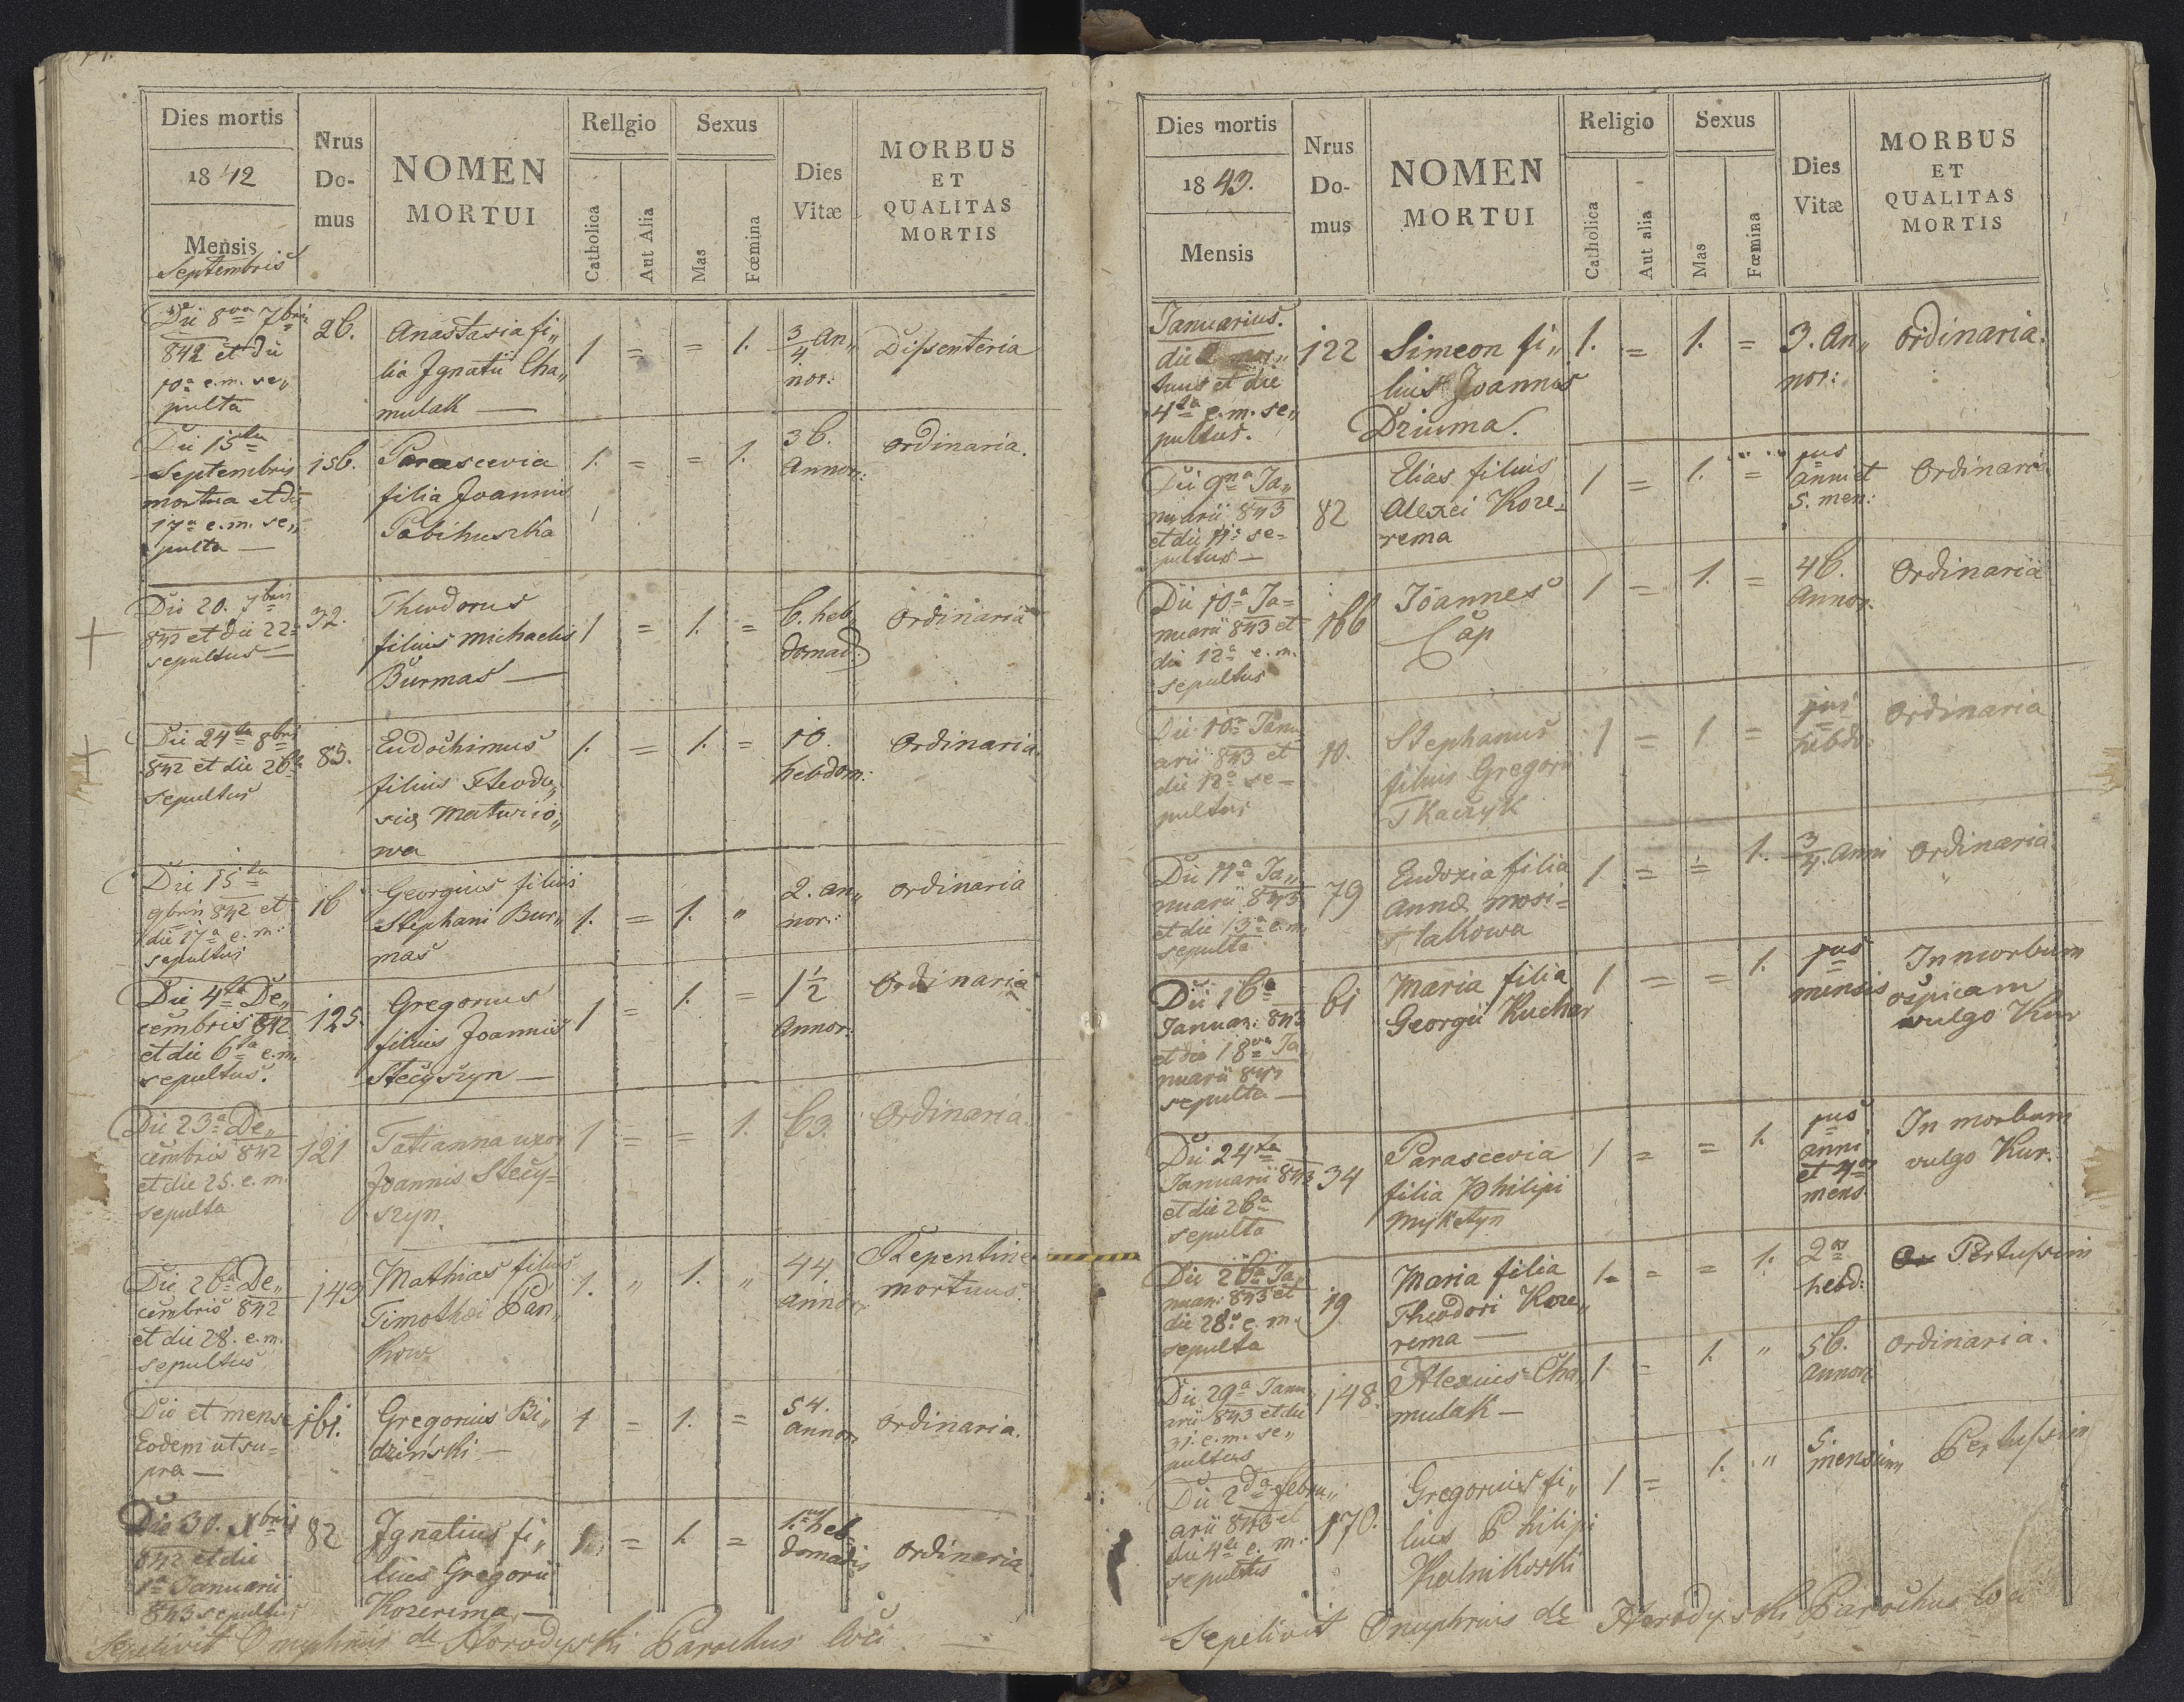 Dies mortis
1842
Mensis
Septembris
Nrus
Do-
mus
NOMEN
MORTUI
Rellgio
Catholica
Aut Alia
Sexus
Mas
Fœmina
Dies
Vitæ
MORBUS
ET
QUALITAS
MORTIS
Die 8va 7bris
842 et die
10a e.m. se„
pulta
26.
Anastasia fi„
lia Ignatii Cha„
mulak —
1 = = 1.
3/4 an„
nor:
Dissenteria
Die 15ta
Septembris
mortua et die
17a e.m. se„
pulta —
156.
Parascevia
filia Joannis
Pabihuszka
1. = = 1.
36.
Annor:
ordinaria.
Die 20. 7bris
842 et die 22a
sepultus —
32.
Theodorus
filius Michaelis
Burmas —
1 = 1. =
6. heb„
domad:
Ordinaria
Die 24ta 8bris
842 et die 26ta
sepultus
85.
Eudochimus
filius Theodo„
siæ Matwiio„
wa
1. = 1. =
10.
hebdom:
Ordinaria.
Die 15ta
9bris 842 et
die 17a e.m:
sepultus
16
Georgius filius
Stephani Bur„
mas
1. = 1. "
2. an„
nor:
ordinaria
Die 4ta De„
cembris 842
et die 6ta e.m.
sepultus.
125.
Gregorius
filius Joannis
Stecyszyn —
1 = 1. =
1½
Annor:
Ordinaria
Die 23a De„
cembris 842
et die 25. e.m.
sepulta
121
Tatianna uxor
Joannis Stecy=
szyn.
1 = = 1.
63.
Ordinaria.
Die 26a De„
cembris 842
et die 28. e.m.
sepultus
143
Mathias filius
Timothei Pan„
kow
1. " 1. "
44
annor:
Repentine
mortuus
Die et mense
Eodem ut su=
pra —
161.
Gregorius Bi„
dziński —
1 = 1. =
54.
annor:
Ordinaria.
Die 30. Xbris
842 et die
1a Januarii
843 sepultus
82
Ignatius fi„
lius Gregorii
Kozerema —
1. = 1. =
1.us heb„
domadis
ordinaria
Sepelivit Onuphrius de Horodyski Parochus loci —
Dies mortis
1843.
Mensis
Nrus
Do-
mus
NOMEN
MORTUI
Religio
Catholica
Aut alia
Sexus
Mas
Fœmina
Dies
Vitæ
MORBUS
ET
QUALITAS
MORTIS
Januarius.
die 2 mor„
tuus et die
4ta e.m. se„
pultus.
122
Simeon fi„
lius Joannis
Dziuma.
1. = 1. =
3. An„
nor:
Ordinaria.
Die 9na Ja„
nuarii 843
et die 11a se=
pultus —
82
Elias filius
Alexei Koze=
rema
1 = 1. =
1us
anni et
5. men:
Ordinaria
Die 10a Ja=
nuarii 843 et
die 12a e.m.
sepultus
166
Joannes
Cap
1 = 1. =
46.
Annor.
Ordinaria
Die 10a Janu
arii 843 et
die 12a se=
pultus
10.
Stephanus
filius Gregorii
Tkaczyk
1 = 1 =
1us
hebdo:
ordinaria
Die 11a Ja„
nuarii 843
et die 13a e.m.
sepulta
79
Eudoxia filia
Annæ Mosi=
takowa
1 = = 1.
3/4. Anni
Ordinaria.
Die 16a
Januar: 843
et die 18va Ja
nuarii 843
sepulta —
61
Maria filia
Georgii Kuchar
1 = = 1.
1us
mensis
In morbum
ospicam
vulgo Kur
Die 24ta
Januarii 843
et die 26a
sepulta
34
Parascevia
filia Philipi
Myketyn
1 = = 1.
1us
anni
et 4or
mens.
In morbum
vulgo Kur.
Die 26a Ja„
nuar: 843 et
die 28a e.m.
sepulta
19
Maria filia
Theodori Koze„
rema —
1. = = 1.
2as
hebd:
Pertussim
Die 29a Janu
arii 843 et die
31. e.m. se„
pultus
148.
Alexius Cha„
mulak —
1 = 1. "
56.
annor
ordinaria.
Die 2da Febru„
arii 843 et
die 4ta e.m:
sepultus
170.
Gregorius fi„
lius Philipi
Kalnikoski
1 = 1. "
5.
mensium
Pertussim
Sepelivit Onuphrius de Horodyski Parochus loci